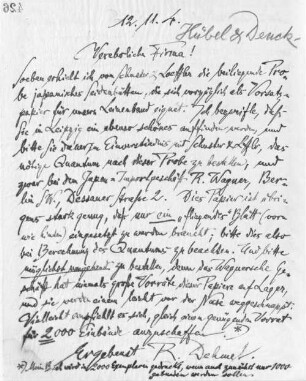 426
12. 11. 4.
Hübel & Denck
Verehrliche Firma!
Soeben erhielt ich von Schuster & Loeffler die beiliegende Probe
japanischen Seidenbütten, die sich vorzüglich als Vorsatzpapier
für unsern Leinenband eignet. Ich bezweifle, daß
Sie in Leipzig ein ebenso schönes auftreiben werden, und
bitte Sie daher im Einverständnis mit Schuster & Löffler, das
nötige Quantum nach dieser Probe zu bestellen, und
zwar bei dem Japan-Importgeschäft R. Wagner, Berlin
SW, Dessauer Straße 2. Dies Papier ist übrigens
stark genug, daß nur ein "fliegendes" Blatt (vorn
wie hinten) eingesetzt zu werden braucht; bitte das
bei Berechnung des Quantums zu beachten. Und bitte
möglichst umgehend zu bestellen, denn das Wagnersche Geschäft
hat niemals große Vorräte dieser Papiere auf Lager,
und sie werden einem leicht vor der Nase weggeschnappt.
Vielleicht empfiehlt es sich, gleich einen genügenden Vorrat
für 2000 Einbände anzuschaffen *)
Ergebenst R. Dehmel.
2000 Exemplaren gedruckt, wenn auch zunächst nur 1000
gebunden werden sollen.